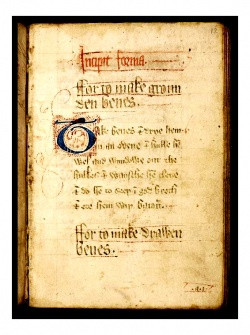 Incipit forma.
ffor to make groun
den benes.
Take benes & drye hem i
n an ovene & hulle he
wel and wyndewe out the
hulkes & waysche he clene
& do he to seeþ i god broth
& ete hem wiþ bacon.
ffor to make drawen
benes.